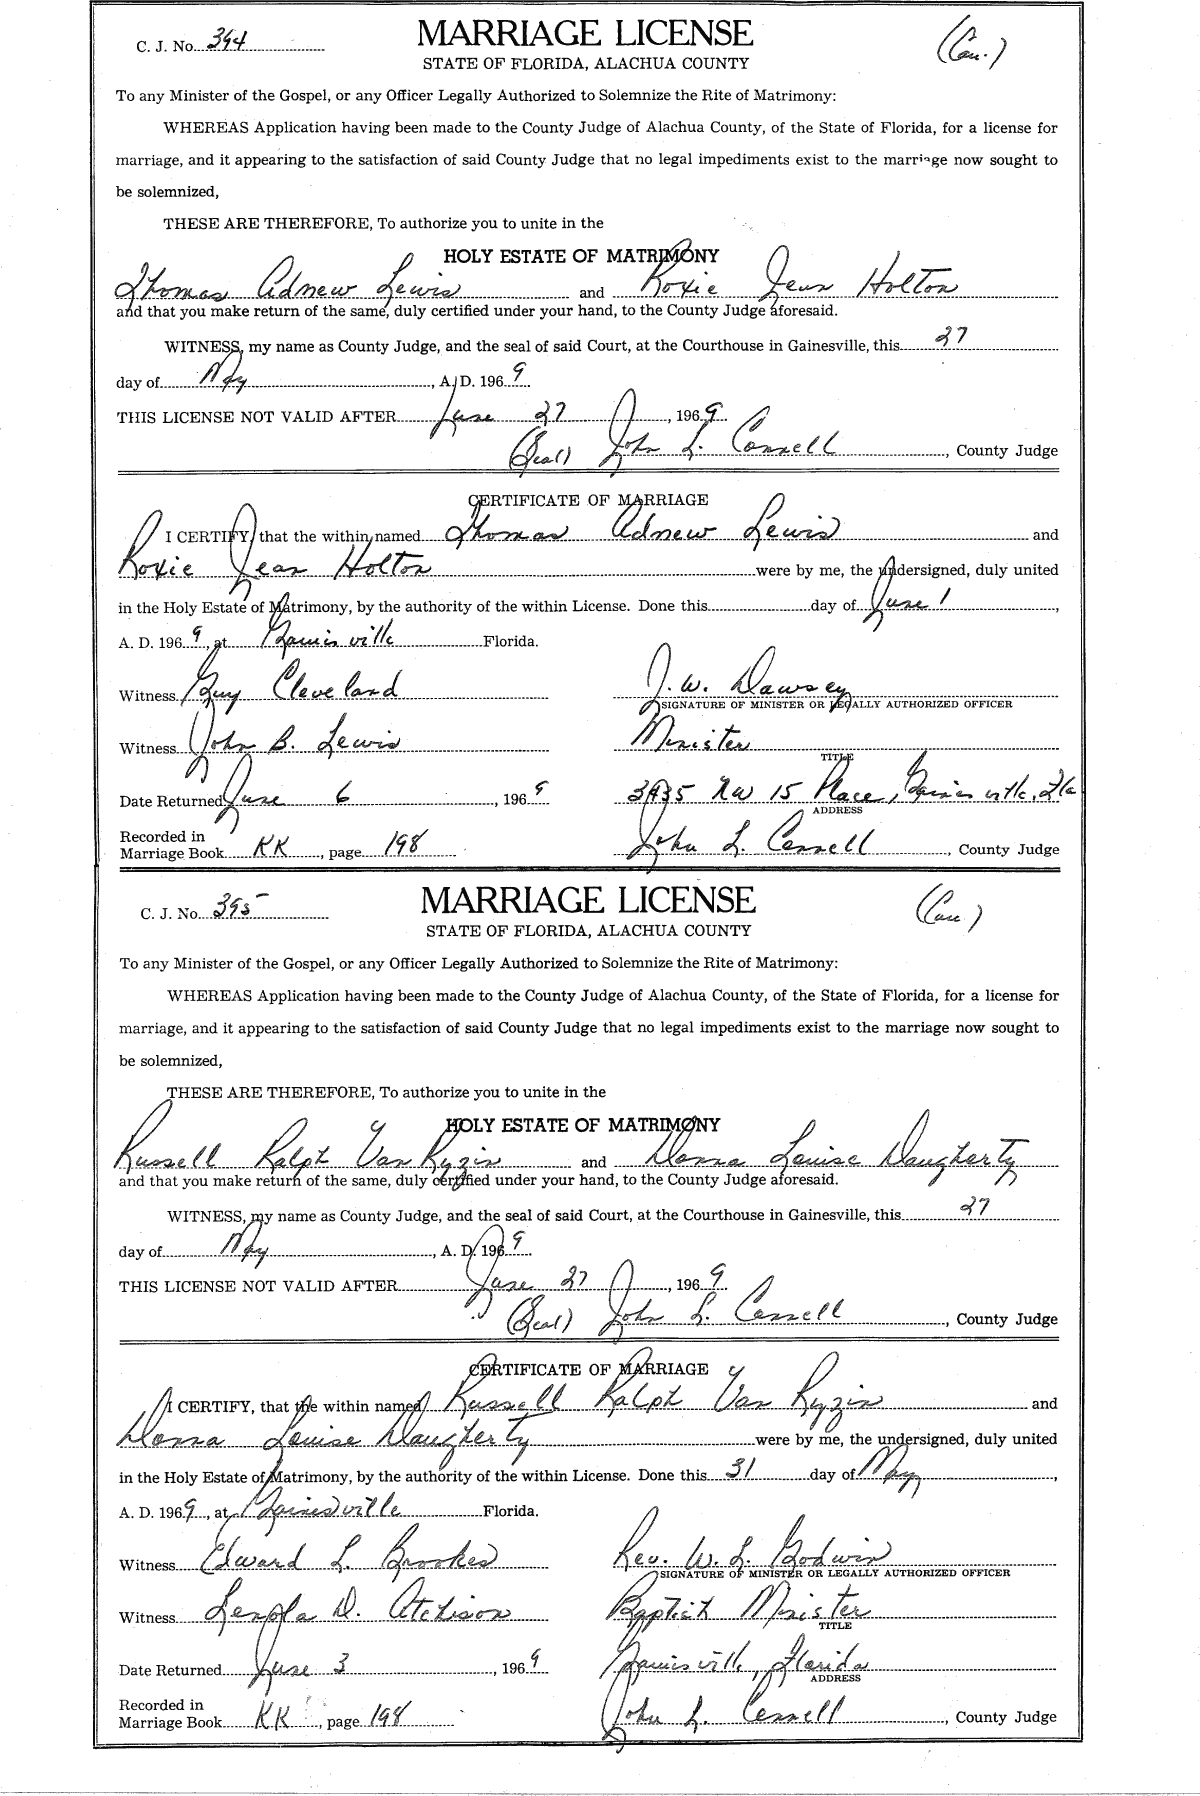 C. J. No. 394
MARRIAGE LICENSE
(Cau.)
STATE OF FLORIDA, ALACHUA COUNTY
To any Minister of the Gospel, or any Officer Legally Authorized to Solemnize the Rite of Matrimony:
WHEREAS Application having been made to the County Judge of Alachua County, of the State of Florida, for a license for
marriage, and it appearing to the satisfaction of said County Judge that no legal impediments exist to the marriage now sought to
be solemnized,
THESE ARE THEREFORE, To authorize you to unite in the
HOLY ESTATE OF MATRIMONY
Thomas Adnew Lewis and Roxie Jean Holton
and that you make return of the same, duly certified under your hand, to the County Judge aforesaid.
WITNESS, my name as County Judge, and the seal of said Court, at the Courthouse in Gainesville, this 27
day of May, A. D. 1969.
THIS LICENSE NOT VALID AFTER June 27, 1969.
(Seal) John L. Connell, County Judge
CERTIFICATE OF MARRIAGE
I CERTIFY, that the within named Thomas Adnew Lewis and
Roxie Jean Holton were by me, the undersigned, duly united
in the Holy Estate of Matrimony, by the authority of the within License. Done this day of June 1,
A. D. 1969, at Gainesville Florida.
Witness Guy Cleveland
J. W. Dawsey
SIGNATURE OF MINISTER OR LEGALLY AUTHORIZED OFFICER
Witness John B. Lewis
Minister
TITLE
Date Returned June 6, 1969
3435 NW 15 Place, Gainesville, Fla
ADDRESS
Recorded in
Marriage Book KK, page 198
John L. Connell, County Judge
C. J. No. 395
MARRIAGE LICENSE
(Cau.)
STATE OF FLORIDA, ALACHUA COUNTY
To any Minister of the Gospel, or any Officer Legally Authorized to Solemnize the Rite of Matrimony:
WHEREAS Application having been made to the County Judge of Alachua County, of the State of Florida, for a license for
marriage, and it appearing to the satisfaction of said County Judge that no legal impediments exist to the marriage now sought to
be solemnized,
THESE ARE THEREFORE, To authorize you to unite in the
HOLY ESTATE OF MATRIMONY
Russell Ralph Van Ryzin and Donna Louise Daugherty
and that you make return of the same, duly certified under your hand, to the County Judge aforesaid.
WITNESS, my name as County Judge, and the seal of said Court, at the Courthouse in Gainesville, this 27
day of May, A. D. 1969.
THIS LICENSE NOT VALID AFTER June 27, 1969.
(Seal) John L. Connell, County Judge
CERTIFICATE OF MARRIAGE
I CERTIFY, that the within named Russell Ralph Van Ryzin and
Donna Louise Daugherty were by me, the undersigned, duly united
in the Holy Estate of Matrimony, by the authority of the within License. Done this 31 day of May,
A. D. 1969, at Gainesville Florida.
Witness Edward L. Brookes
Rev. W. L. Godwin
SIGNATURE OF MINISTER OR LEGALLY AUTHORIZED OFFICER
Witness Lenola D. Atchison
Baptist Minister
TITLE
Date Returned June 3, 1969
Gainesville, Florida
ADDRESS
Recorded in
Marriage Book KK, page 198
John L. Connell, County Judge